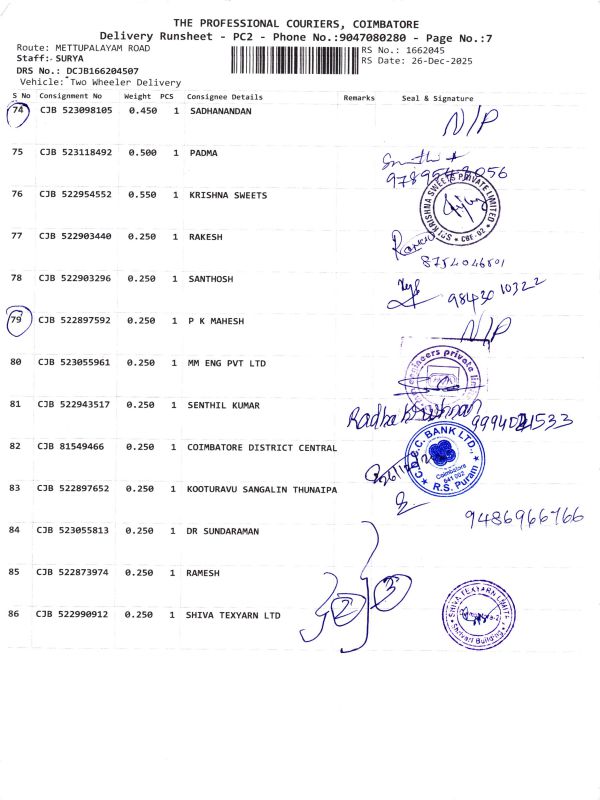 THE PROFESSIONAL COURIERS, COIMBATORE
Delivery Runsheet - PC2 - Phone No.:9047080280 - Page No.:7
Route: METTUPALAYAM ROAD RS No.: 1662045
Staff: SURYA RS Date: 26-Dec-2025
DRS No.: DCJB166204507
Vehicle: Two Wheeler Delivery
S No Consignment No Weight PCS Consignee Details Remarks Seal & Signature
74 CJB 523098105 0.450 1 SADHANANDAN N/P
75 CJB 523118492 0.500 1 PADMA
76 CJB 522954552 0.550 1 KRISHNA SWEETS SRI KRISHNA SWEETS PRIVATE LIMITED * CBE. 02 *
77 CJB 522903440 0.250 1 RAKESH
8754046801
78 CJB 522903296 0.250 1 SANTHOSH 9843010322
79 CJB 522897592 0.250 1 P K MAHESH N/P
80 CJB 523055961 0.250 1 MM ENG PVT LTD engineers private
81 CJB 522943517 0.250 1 SENTHIL KUMAR Radha Krishnan
82 CJB 81549466 0.250 1 COIMBATORE DISTRICT CENTRAL C.D.C.C. BANK LTD., Coimbatore 641 002 R.S. Puram
83 CJB 522897652 0.250 1 KOOTURAVU SANGALIN THUNAIPA
9486966766
84 CJB 523055813 0.250 1 DR SUNDARAMAN
85 CJB 522873974 0.250 1 RAMESH
2 3
86 CJB 522990912 0.250 1 SHIVA TEXYARN LTD SHIVA TEXYARN LIMITED Shivari Building